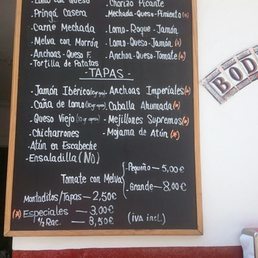 Lomo con Queso
Chorizo Picante
Pringá Casera
Mechada-Queso-Pimiento (*)
Carne Mechada
Lomo-Roque-Jamón
Melva con Morrón
Lomo-Queso-Jamón (*)
Anchoas-Queso F.
Anchoa-Queso-Tomate (*)
Tortilla de Patatas
-TAPAS-
Jamón Ibérico
Anchoas Imperiales (*)
Caña de Lomo
Caballa Ahumada (*)
Queso Viejo
Mejillones Supremos (*)
Chicharrones
Mojama de Atún (*)
Atún en Escabeche
Ensaladilla (NO)
Tomate con Melva
Pequeño - 5,00€
Grande - 8,00€
Montaditos/Tapas - 2,50€
(*) Especiales - 3,00€
½ Rac. - 8,50€ (iva incl.)
BOD